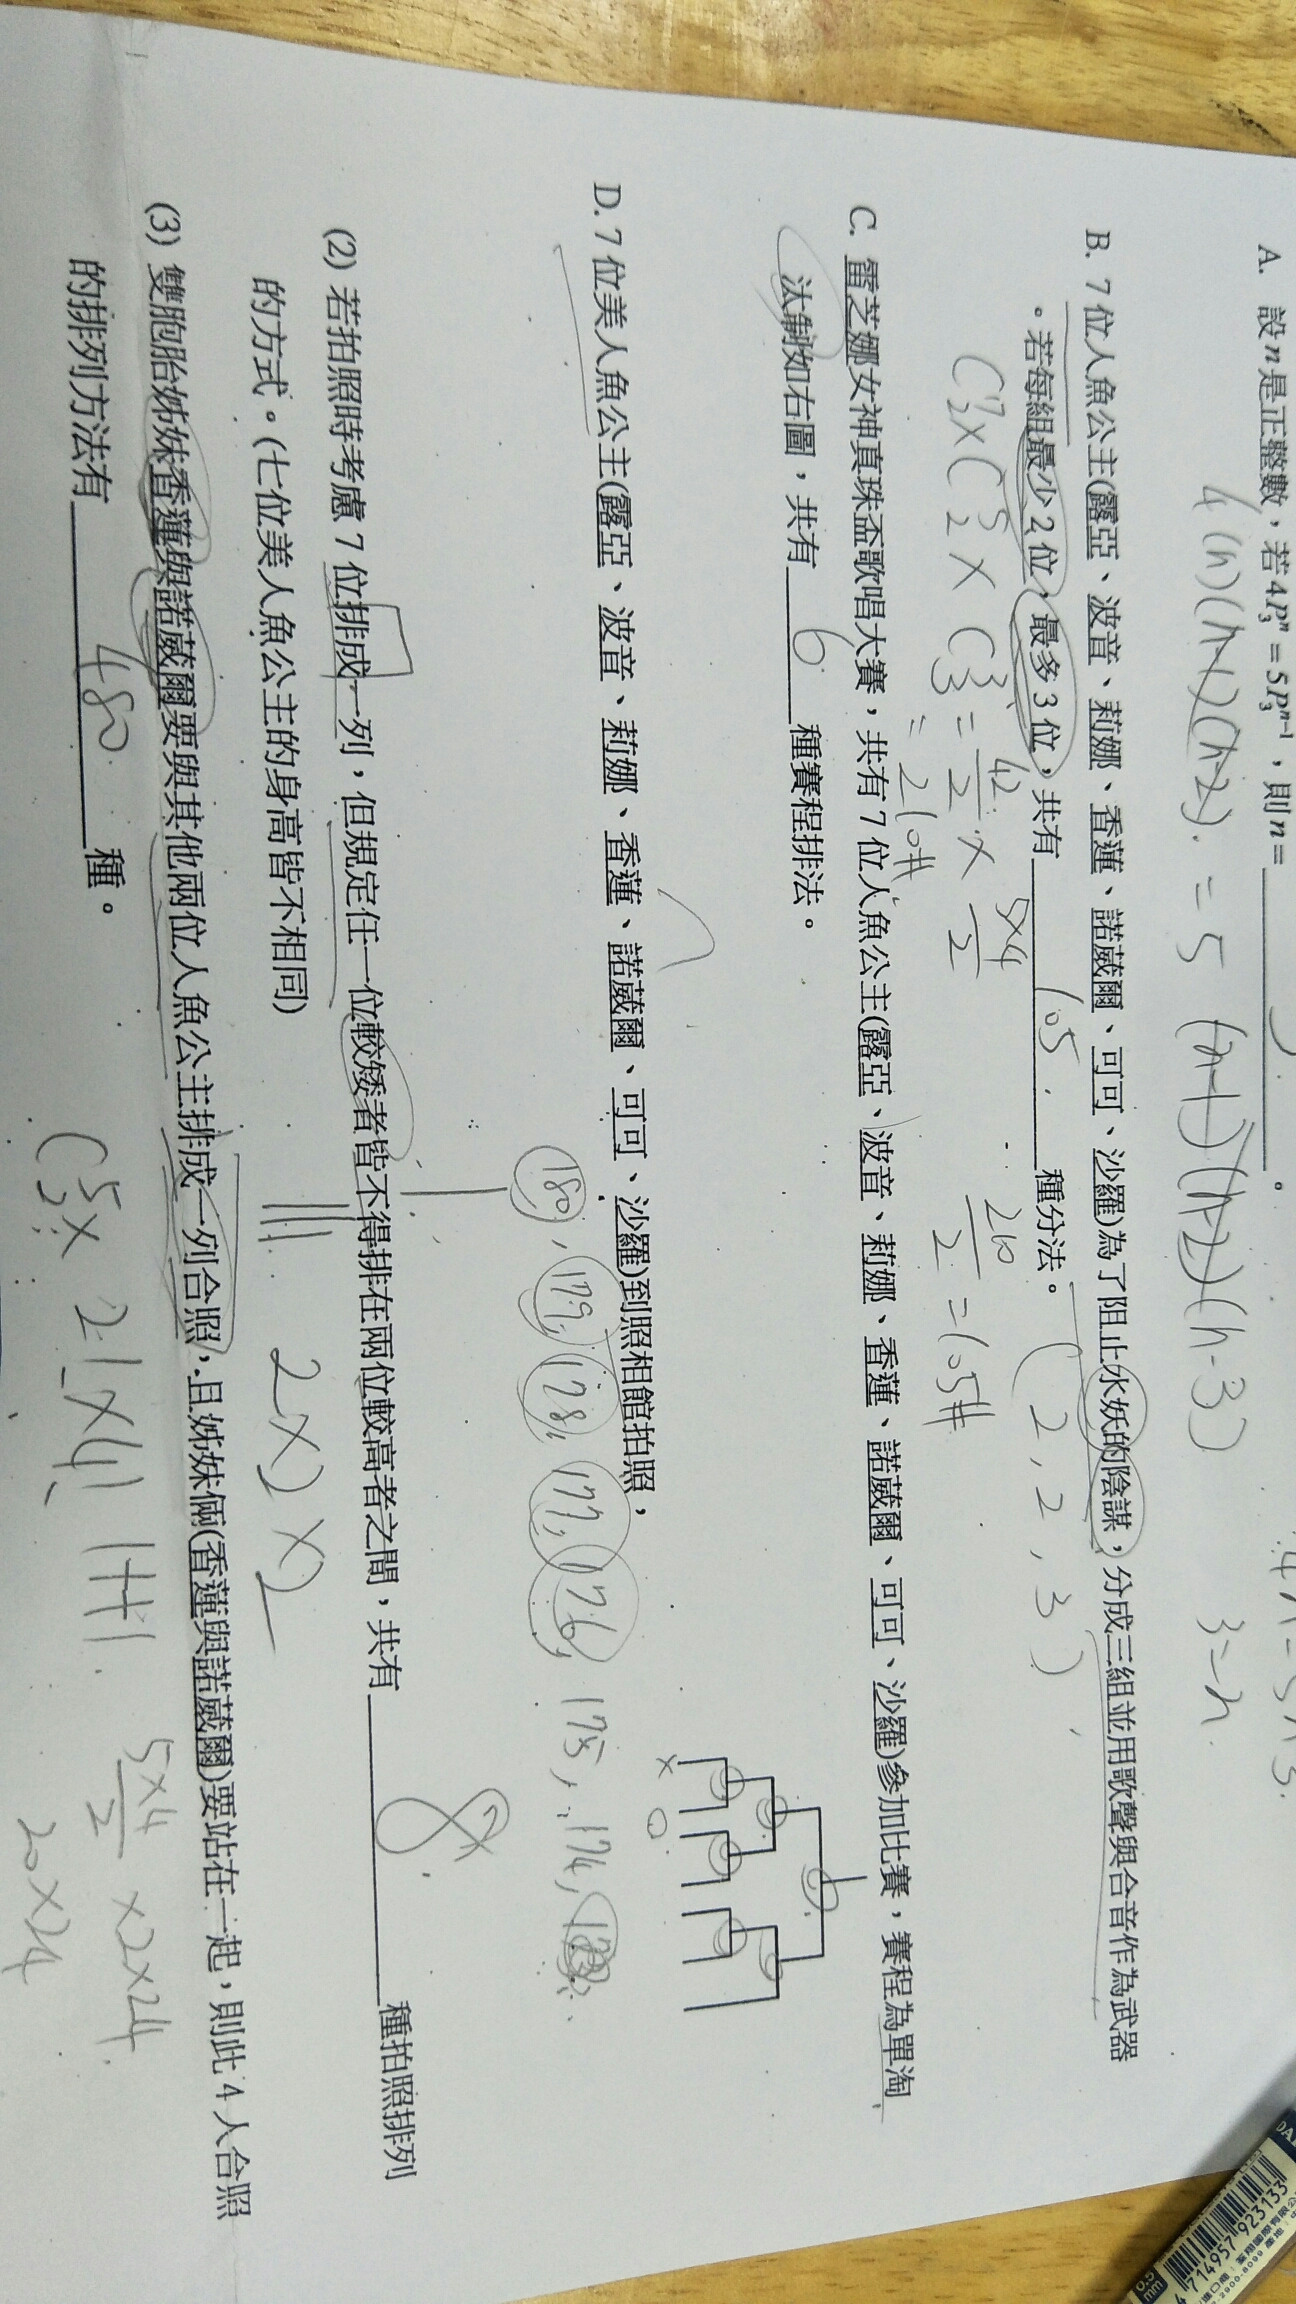 A. 設n是正整數，若4P₃ⁿ = 5P₃ⁿ⁻¹，則n= 。
4(n)(n-1)(n-2). = 5 (n-1)(n-2)(n-3)
B. 7位人魚公主(露亞、波音、莉娜、香蓮、諾葳爾、可可、沙羅)為了阻止水妖的陰謀，分成三組並用歌聲與合音作為武器
。若每組最少2位，最多3位，共有 105. 種分法。 (2,2,3)
C⁷₂×C⁵₂×C³₃ = 42/2 × 5×4/2
= 210# 210/2 = 105#
C. 雷芝娜女神真珠盃歌唱大賽，共有7位人魚公主(露亞、波音、莉娜、香蓮、諾葳爾、可可、沙羅)參加比賽，賽程為單淘
汰制如右圖，共有 6 種賽程排法。
D. 7位美人魚公主(露亞、波音、莉娜、香蓮、諾葳爾、可可、沙羅)到照相館拍照，
180, 179, 178, 177, 176, 175, 174,
(2) 若拍照時考慮7位排成一列，但規定任一位較矮者皆不得排在兩位較高者之間，共有 8 種拍照排列
的方式。(七位美人魚公主的身高皆不相同)
2×2×2
(3) 雙胞胎姊妹香蓮與諾葳爾要與其他兩位人魚公主排成一列合照，且姊妹倆(香蓮與諾葳爾)要站在一起，則此4人合照
的排列方法有 480 種。
C⁵₂× 2!×4!
5×4/2 ×2×24
20×24
DA
4 714957 923133
0.5
mm